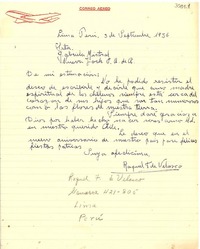 CORREO AEREO
Lima Perú, 3 de Septiembre 1956
Srta.
Gabriela Mistral
Nueva York E.U. de A
De mi estimación: No he podido resistir el
deseo de escribirle y decirle que como madre
espiritual de los chilenos siempre está cerca del
corazón de sus hijos que son tan numerosos
como las flores de nuestra tierra.
Siempre doy gracias a
Dios por haber
en nuestro querido Chile.
Le deseo que en el
nuevo aniversario de nuestro país pase felices
fiestas patrias
Suya afectísima.
Raquel F. de Velasco
Raquel F. de Velasco
Lima
Perú